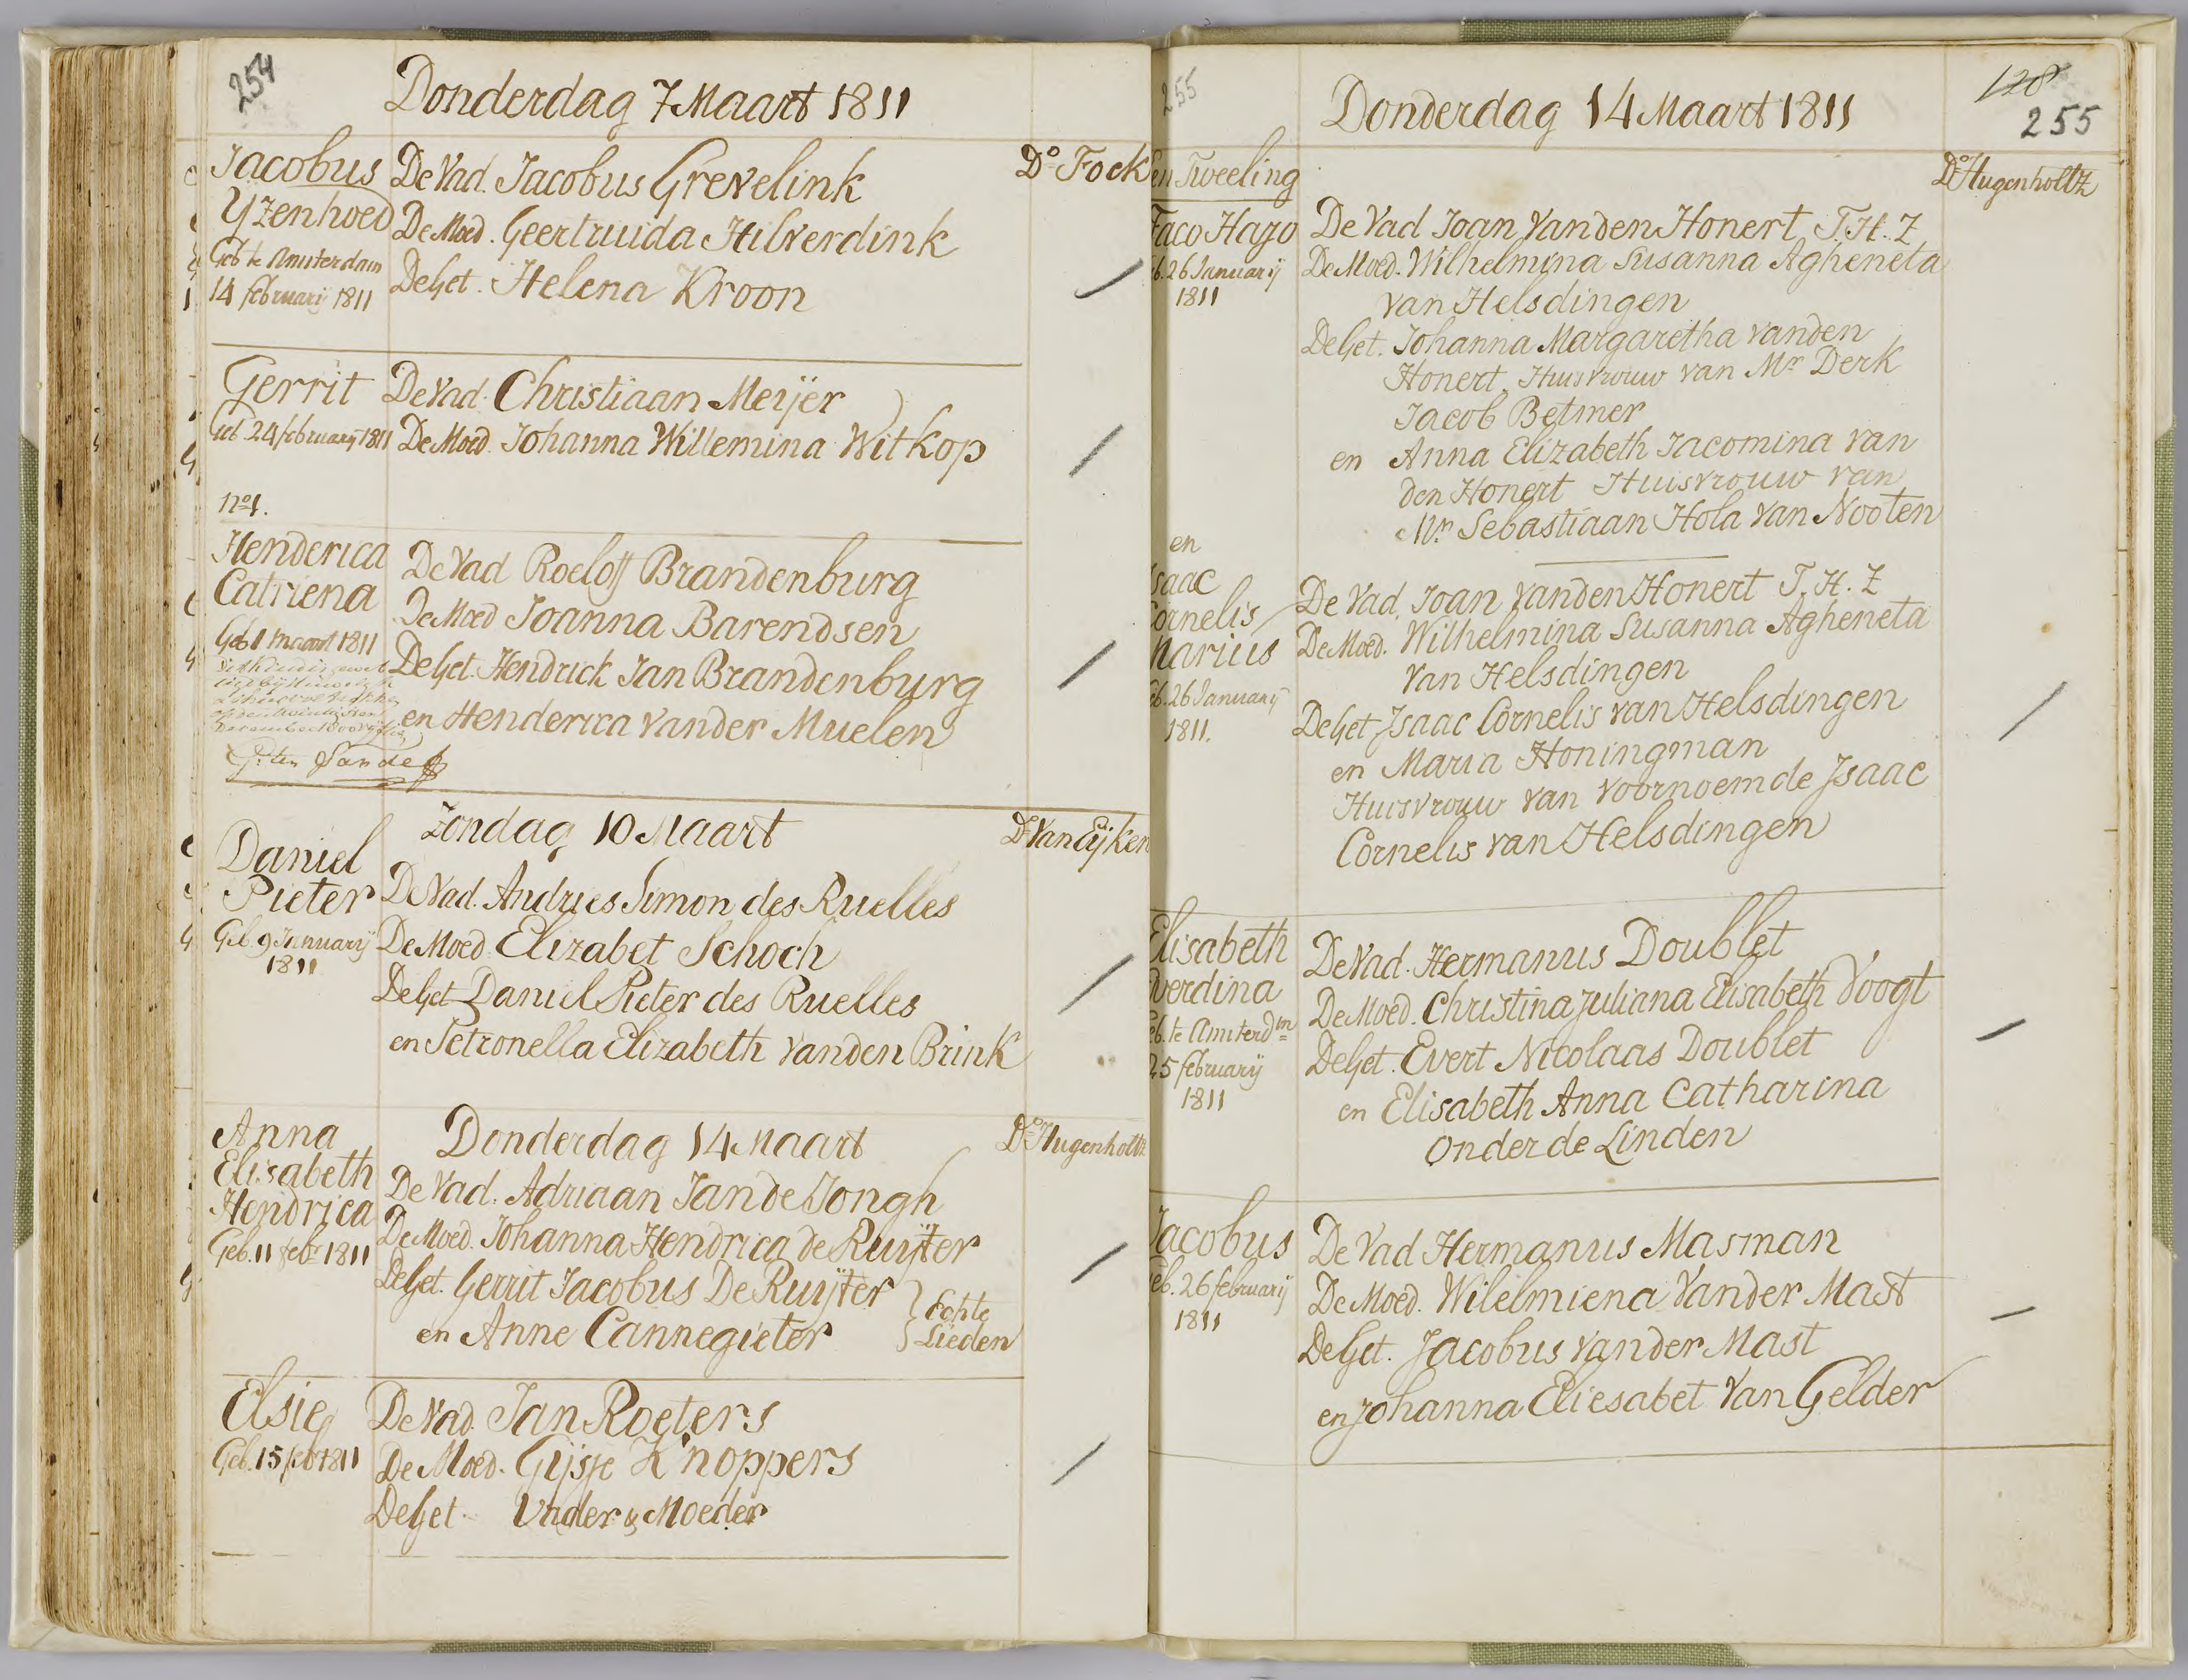 254
Donderdag 7 Maart 1811
Do Fock
Jacobus
Yzenhoed
Geb te Amsterdam
14 februarij 1811
De Vad. Jacobus Grevelink
De Moed. Geertruida Hilverdink
De Get. Helena Kroon
Gerrit
Geb. 24 februarij 1811
De Vad. Christiaan Meijer
De Moed. Johanna Willemina Witkop
No 1.
Henderica
Catriena
Geb 1 maart 1811
De Vad Roeloff Brandenburg
De Moed Joanna Barendsen
De Get. Hendrick Jan Brandenburg
en Henderica vander Muelen
Zondag 10 Maart
Ds Van Eijken
Daniel
Pieter
Geb. 9 Januarij
1811
De Vad. Andries Simon des Ruelles
De Moed Elizabet Schoch
De Get Daniel Pieter des Ruelles
en Petronella Elizabeth vanden Brink
Donderdag 14 Maart
Do Hugenholtz
Anna
Elisabeth
Hendrica
Geb. 11 febr 1811
De Vad. Adriaan Jan de Jongh
De Moed. Johanna Hendrica de Ruijter
De Get. Gerrit Jacobus De Ruijter
en Anne Cannegieter
Echte
Lieden
Elsie
Geb. 15 feb 1811
De Vad. Jan Roeters
De Moed. Gijsje Knoppers
De Get. Vader & Moeder
255
Donderdag 14 Maart 1811
128
255
Do Hugenholtz
en Tweeling
Taco Hajo
b. 26 Januarij
1811
De Vad Joan vanden Honert T.H.Z
De Moed. Wilhelmina Susanna Agheneta
van Helsdingen
De Get. Johanna Margaretha vanden
Honert, Huisvrouw van Mr Derk
Jacob Betmer
en Anna Elizabeth Jacomina van
den Honert Huisvrouw van
Mr Sebastiaan Hola van Nooten
en
saac
Cornelis
Marius
eb. 26 Januarij
1811.
De Vad. Joan vanden Honert T.H.Z
De Moed. Wilhelmina Susanna Agheneta
van Helsdingen
De Get Isaac Cornelis van Helsdingen
en Maria Honingman
Huisvrouw van voornoemde Isaac
Cornelis van Helsdingen
Elisabeth
verdina
eb. te Amsterdm
25 februarij
1811
De Vad. Hermanus Doublet
De Moed. Christina Juliana Elisabeth Voogt
De Get. Evert Nicolaas Doublet
en Elisabeth Anna Catharina
Onder de Linden
Jacobus
eb. 26 februarij
1811
De Vad Hermanus Masman
De Moed. Wilelmiena Vander Mast
De Get. Jacobus vander Mast
en Johanna Eliesabet Van Gelder